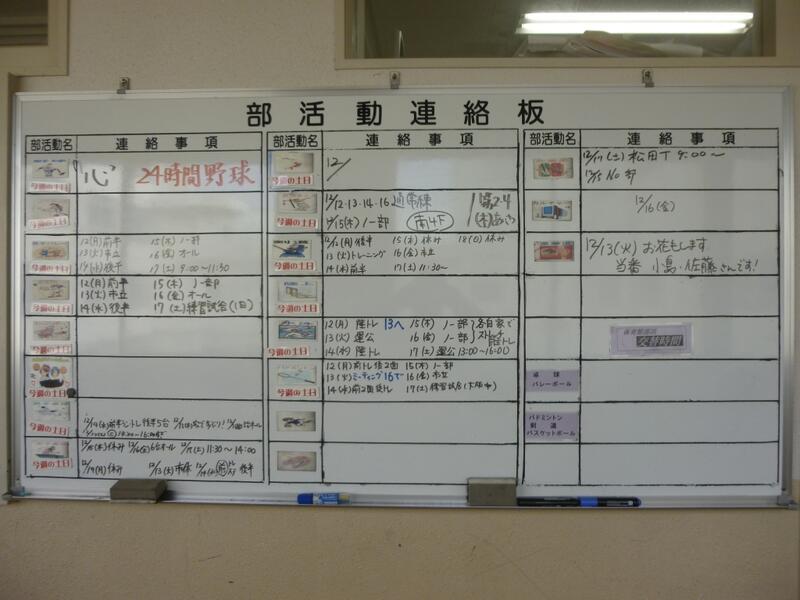 部活動連絡板
部活動名 連絡事項
今週の土日 "心" 24時間野球
今週の土日
今週の土日 12(月)前半 15(木)ノー部
13(火)市立 16(金)オール
14(水)後半 17(土)9:00～11:30
今週の土日 12(月)前半 15(木)ノー部
13(火)市立 16(金)オール
14(水)後半 17(土)練習試合(1日)
今週の土日
今週の土日
12/15(木)休み 12/16(金)6台オール 12/17(土)11:30～14:00
今週の土日 12/19(月)休み
部活動名 連絡事項
今週の土日 12/
12/12・13・14・16 通常棟
12/15(木)ノー部 南4下
今週の土日 12/12(月)後半 15(木)休み 18(日)休み
13(火)トレーニング 16(金)市立
14(水)前半 17(土)11:30～
今週の土日
今週の土日 12(月)陸トレ 13へ 15(木)ノー部 各自家で
13(火)運公 16(金)ノー部 ストレッチ
14(水)陸トレ 17(土)運公13:00～16:00 陸トレ
今週の土日 12(月)前トレ後2面 15(木)ノー部
13(火)ミーティング 16で 16(金)市立
14(水)前2面後トレ 17(土)練習試合
部活動名 連絡事項
12/17(土)松田丁 9:00～
12/15 No部
12/16(金)
12/13(火)お花もします
当番 小島・佐藤さんです!
体育館部活
交替時間
卓球
バレーボール
バドミントン
剣道
バスケットボール